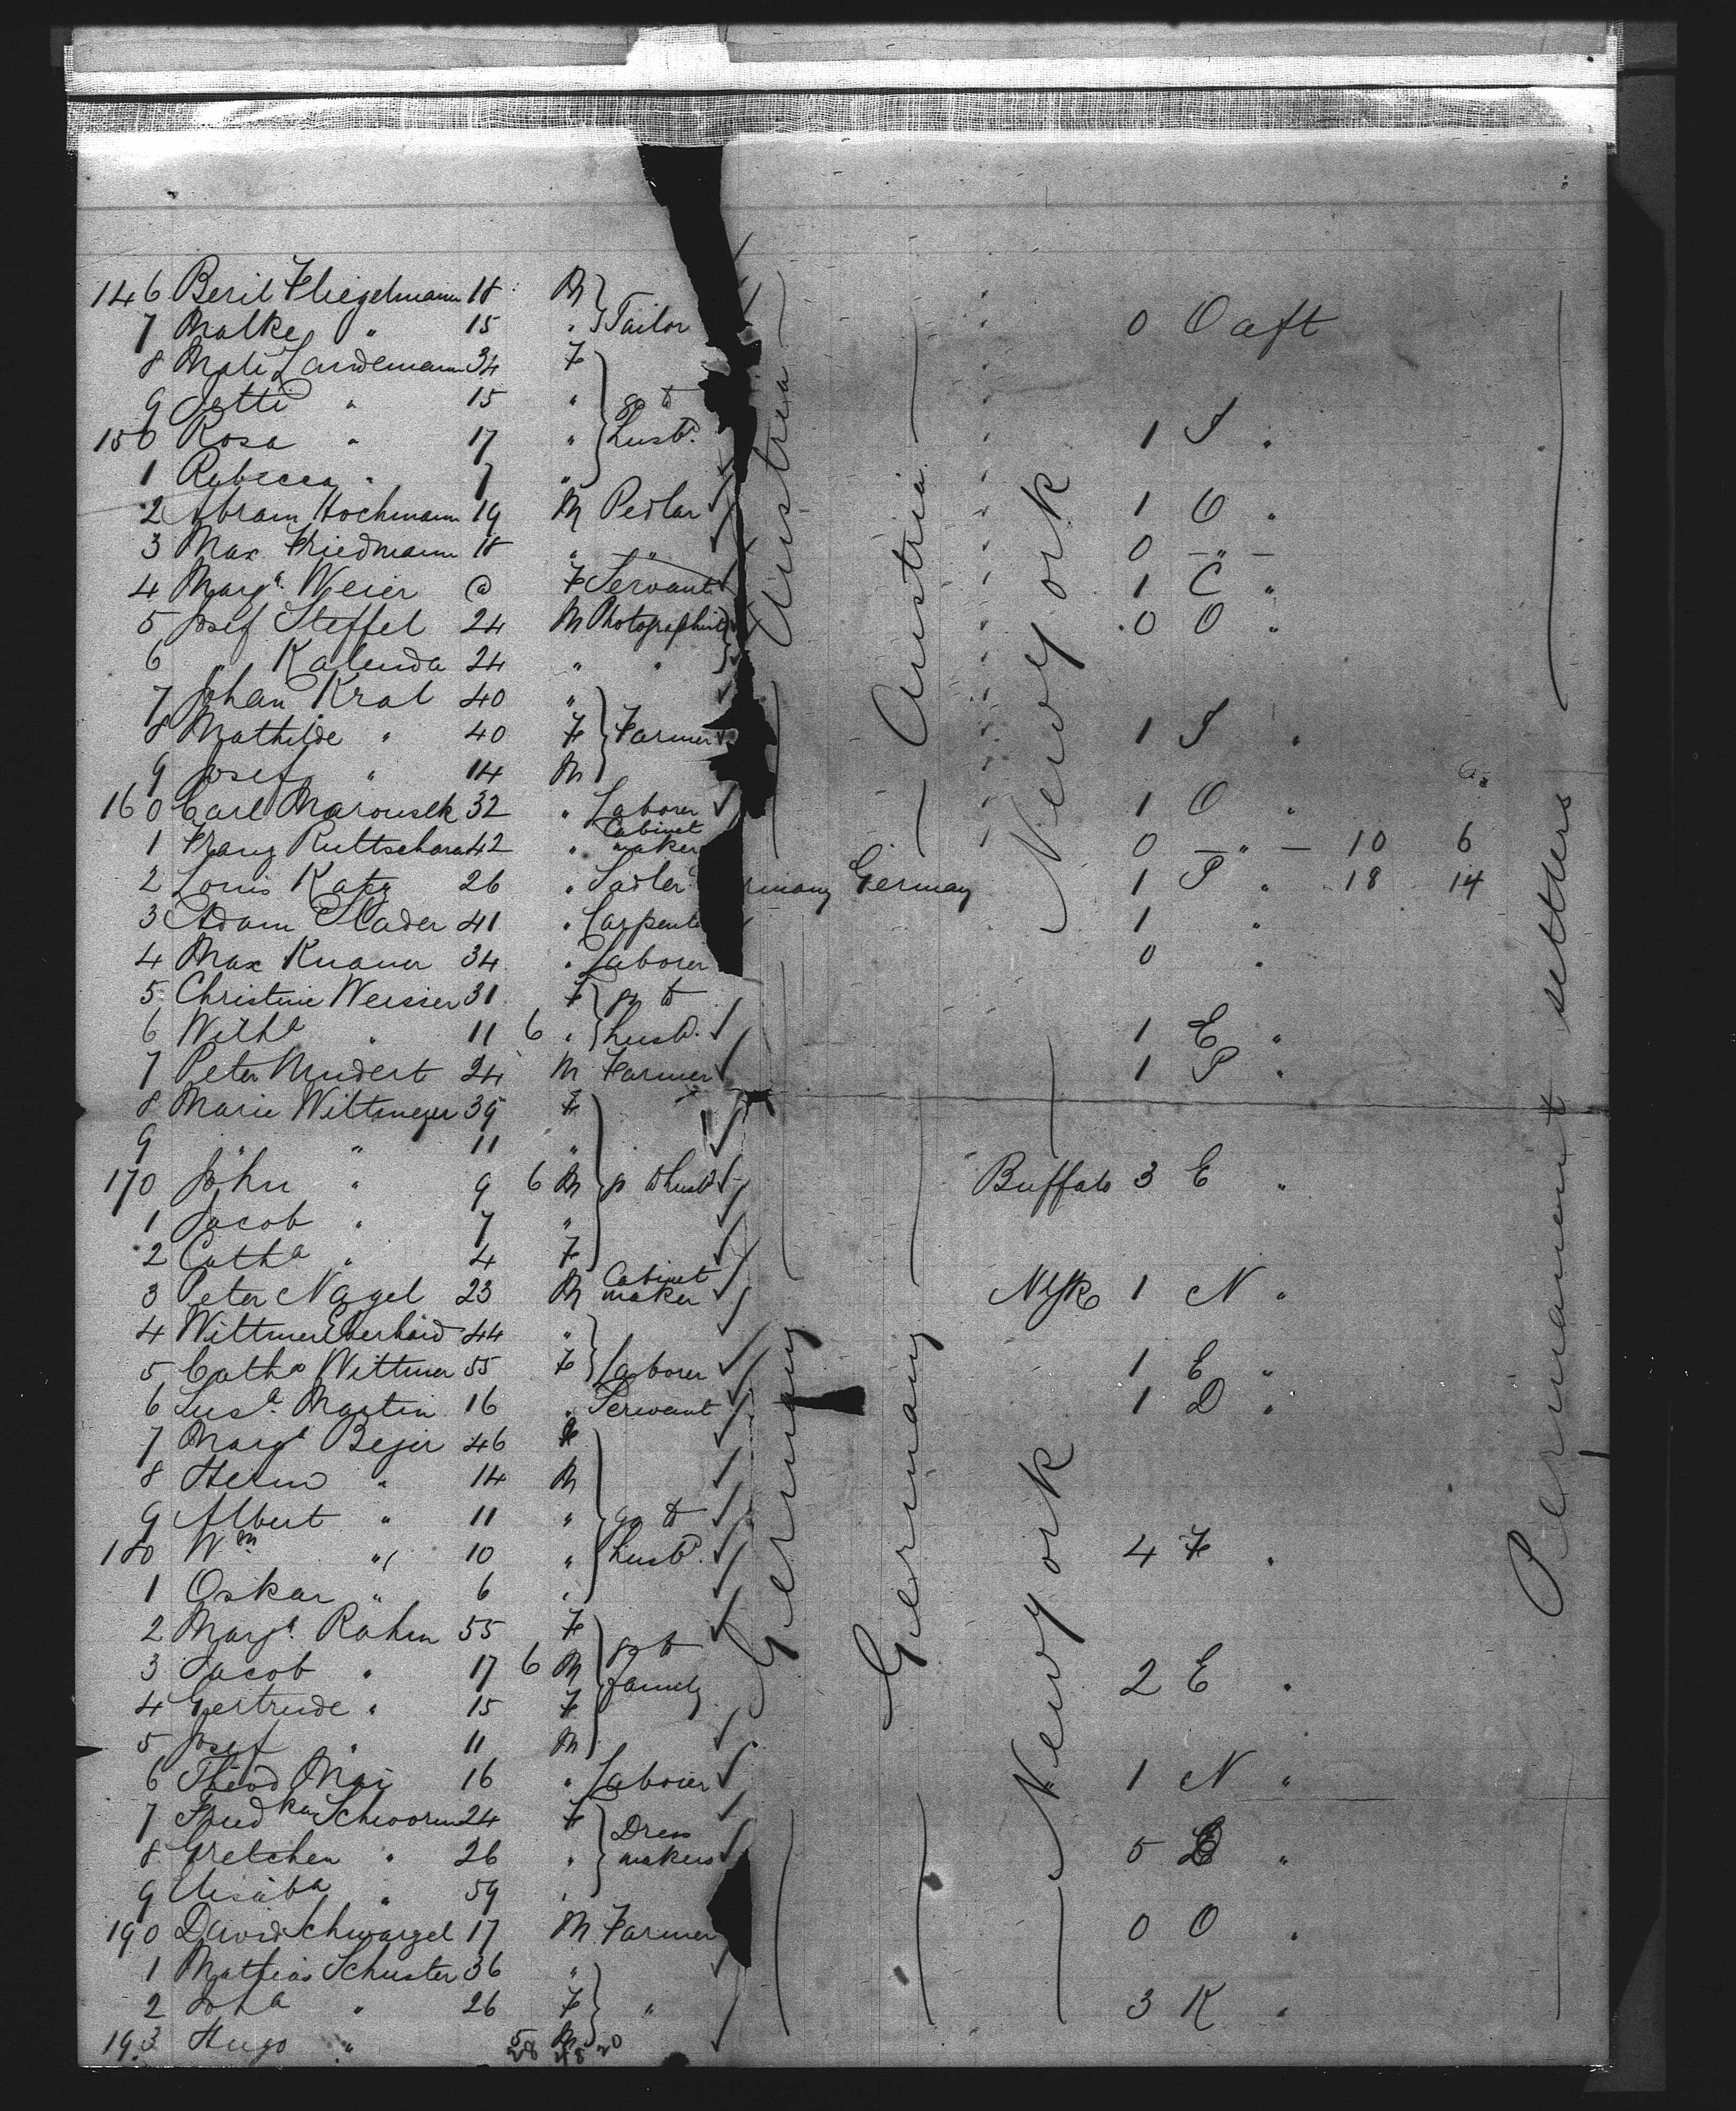 146 Beril Fliegelmann 18 M
7 Malke " 15 " Tailor 0 O aft
8 Mali Landemann 34 F
9 Jetti " 15 " go to
150 Rosa " 17 " husbd. 1 S "
1 Rebecca " 7 "
2 Abram Hochmann 19 M Pedlar 1 O "
3 Max Friedmann 18 " — " 0 — " —
4 Marga. Weier @ F Servant 1 C "
5 Josef Steffel 24 M Photographist 0 O "
6 " Kalenda 24 " "
7 Johan Kral 40 "
8 Mathilde " 40 F Farmer 1 S "
9 Josef " 14 M
160 Carl Marousek 32 " Laborer 1 O "
1 Franz Ruttschara 42 " Cabinet maker 0 — " — 10 6
2 Louis Katz 26 " Sadler rmany Germany 1 P " 18 14
3 Adam Stader 41 " Carpente 1 "
4 Max Knauer 34 " Laborer 0 "
5 Christine Weisser 31 F go to
6 Wilha " 11 6 " husbd. 1 E "
7 Peter Mudert 24 M Farmer 1 P "
8 Marie Wittmeyer 39 F
9 " " 11 "
170 John " 9 6 M go to husbd Buffalo 3 E "
1 Jacob " 7 "
2 Catha " 4 F
3 Peter Nagel 23 M Cabinet maker NYk 1 N "
4 Wittmer Eberhard 44 "
5 Catha Wittmer 55 F Laborer 1 E "
6 Susa. Martin 16 " Servant 1 D "
7 Margt Bejer 46 F
8 Herm " 14 M
9 Albert " 11 " go to
180 Wm " 10 " husbd. 4 F "
1 Oskar " 6 "
2 Marga. Rahm 55 F go to
3 Jacob " 17 6 M family 2 E "
4 Gertrude " 15 F
5 Josef " 11 M
6 Theod Mai 16 " Laborer 1 N "
7 Fried ken Schwoorm 24 F Dress
8 Gretchen " 26 " makers 5 "
9 Elisaba " 59 "
190 David Schwargel 17 M Farmer 0 O "
1 Mathias Schuster 36 "
2 Joha " 26 F " 3 K "
193 Hugo " 5 M
28 48 20
Austria
Austria
New York
Germany
Germany
New York
Permanent settlers